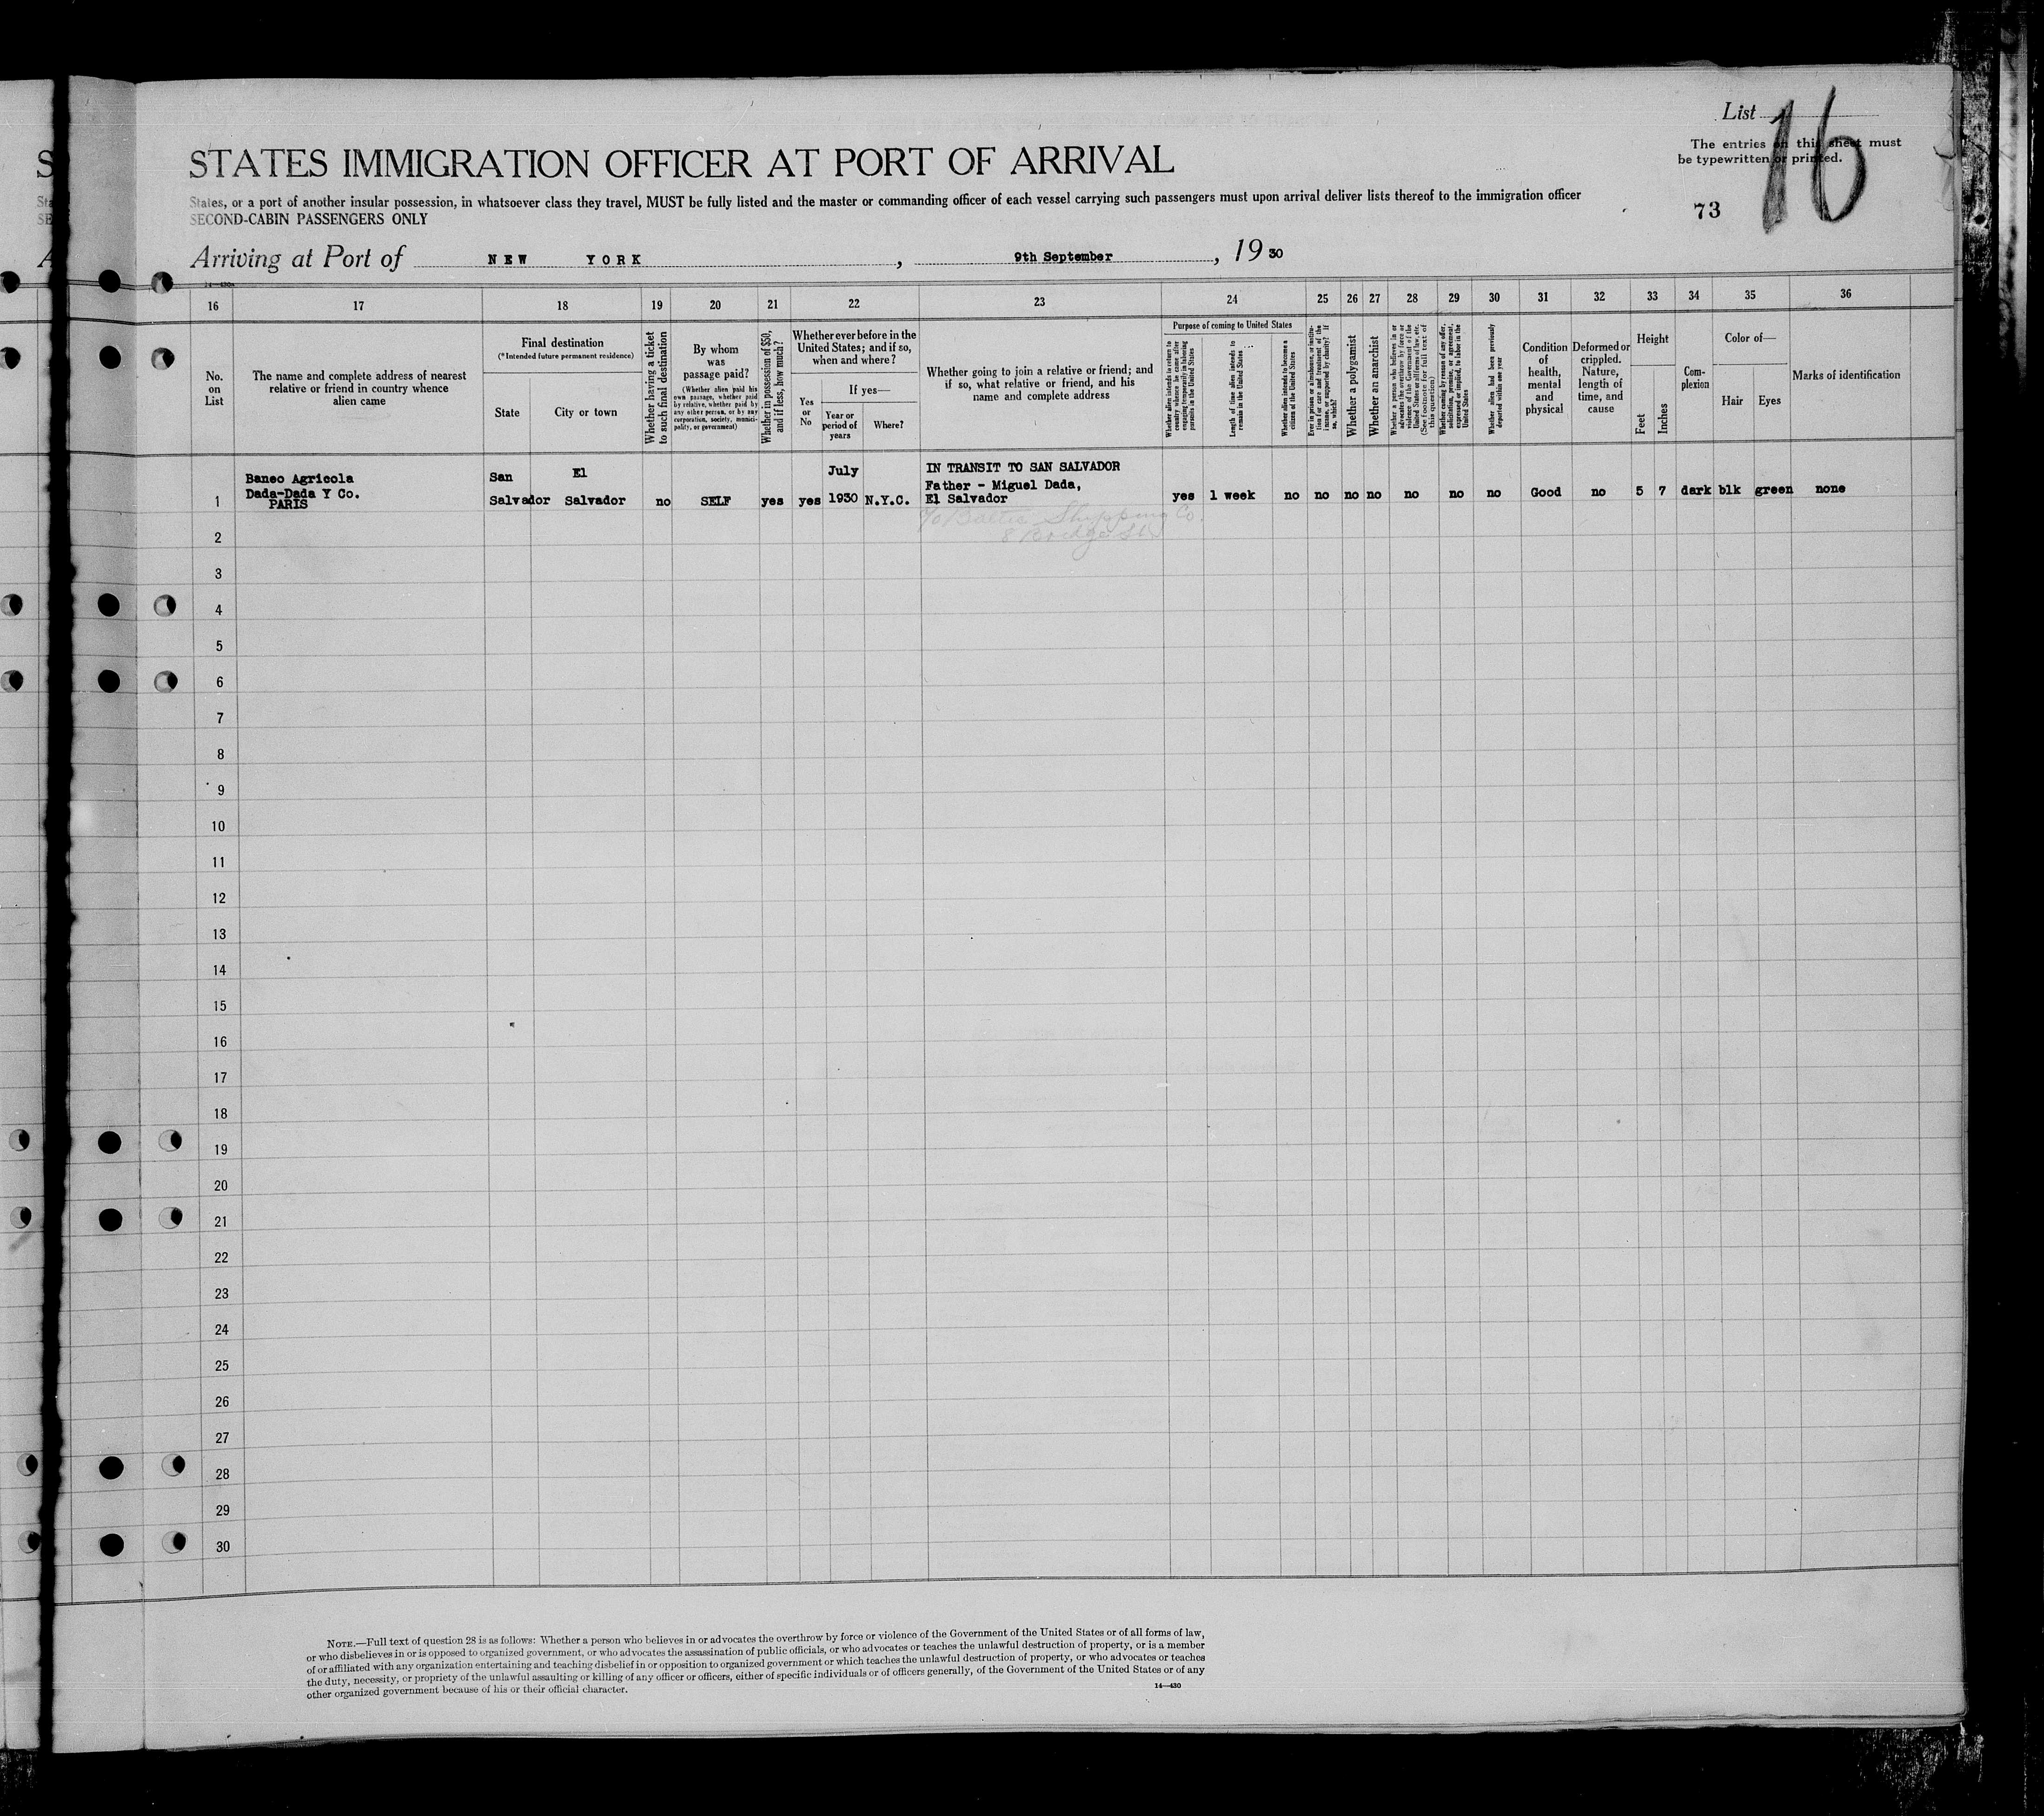 List 16
The entries on this sheet must
be typewritten or printed.
STATES IMMIGRATION OFFICER AT PORT OF ARRIVAL
States, or a port of another insular possession, in whatsoever class they travel, MUST be fully listed and the master or commanding officer of each vessel carrying such passengers must upon arrival deliver lists thereof to the immigration officer
SECOND-CABIN PASSENGERS ONLY
73
Arriving at Port of NEW YORK, 9th September, 1930
14—430a
16 17 18 19 20 21 22 23 24 25 26 27 28 29 30 31 32 33 34 35 36
No. on List
The name and complete address of nearest
relative or friend in country whence
alien came
Final destination
(*Intended future permanent residence)
State
City or town
Whether having a ticket
to such final destination
By whom
was
passage paid?
(Whether alien paid his
own passage, whether paid
by relative, whether paid by
any other person, or by any
corporation, society, munici-
pality, or government)
Whether in possession of $50,
and if less, how much?
Whether ever before in the
United States; and if so,
when and where?
Yes
or
No
If yes—
Year or
period of
years
Where?
Whether going to join a relative or friend; and
if so, what relative or friend, and his
name and complete address
Purpose of coming to United States
Whether alien intends to return to
country whence he came after
engaging temporarily in laboring
pursuits in the United States
Length of time alien intends to
remain in the United States
Whether alien intends to become a
citizen of the United States
Ever in prison or almshouse, or institu-
tion for care and treatment of the
insane, or supported by charity? If
so, which?
Whether a polygamist
Whether an anarchist
Whether a person who believes in or
advocates the overthrow by force or
violence of the Government of the
United States or all forms of law, etc.
(See footnote for full text of
this question)
Whether coming by reason of any offer,
solicitation, promise, or agreement,
expressed or implied, to labor in the
United States
Whether alien had been previously
deported within one year
Condition
of
health,
mental
and
physical
Deformed or
crippled.
Nature,
length of
time, and
cause
Height
Feet
Inches
Com-
plexion
Color of—
Hair
Eyes
Marks of identification
Banco Agricola San El July IN TRANSIT TO SAN SALVADOR
Dada-Dada Y Co. Father - Miguel Dada,
1 PARIS Salvador Salvador no SELF yes yes 1930 N.Y.C. El Salvador yes 1 week no no no no no no no Good no 5 7 dark blk green none
c/o Baltic Shipping Co.
8 Bridge St.
2
3
4
5
6
7
8
9
10
11
12
13
14
15
16
17
18
19
20
21
22
23
24
25
26
27
28
29
30
NOTE.—Full text of question 28 is as follows: Whether a person who believes in or advocates the overthrow by force or violence of the Government of the United States or of all forms of law,
or who disbelieves in or is opposed to organized government, or who advocates the assassination of public officials, or who advocates or teaches the unlawful destruction of property, or is a member
of or affiliated with any organization entertaining and teaching disbelief in or opposition to organized government or which teaches the unlawful destruction of property, or who advocates or teaches
the duty, necessity, or propriety of the unlawful assaulting or killing of any officer or officers, either of specific individuals or of officers generally, of the Government of the United States or of any
other organized government because of his or their official character.
14—430